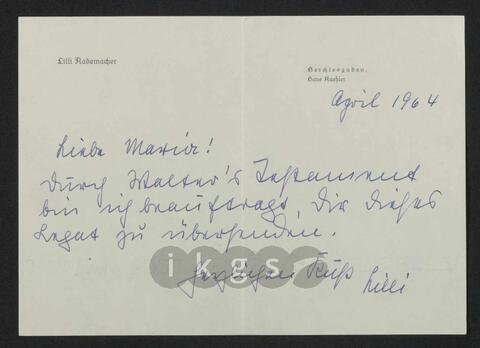 Lilli Rademacher
Berchtesgaden,
Haus Kaehler
April 1964
Liebe Maria!
Durch Walter's Testament
bin ich beauftragt, Dir dieses
Legat zu übersenden.
ikgs
Herzlichen Kuß
Lilli